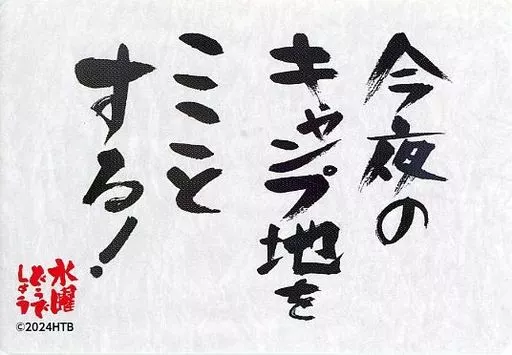 今夜の
キャンプ地を
ここと
する！
水曜
どうで
しょう
©2024HTB